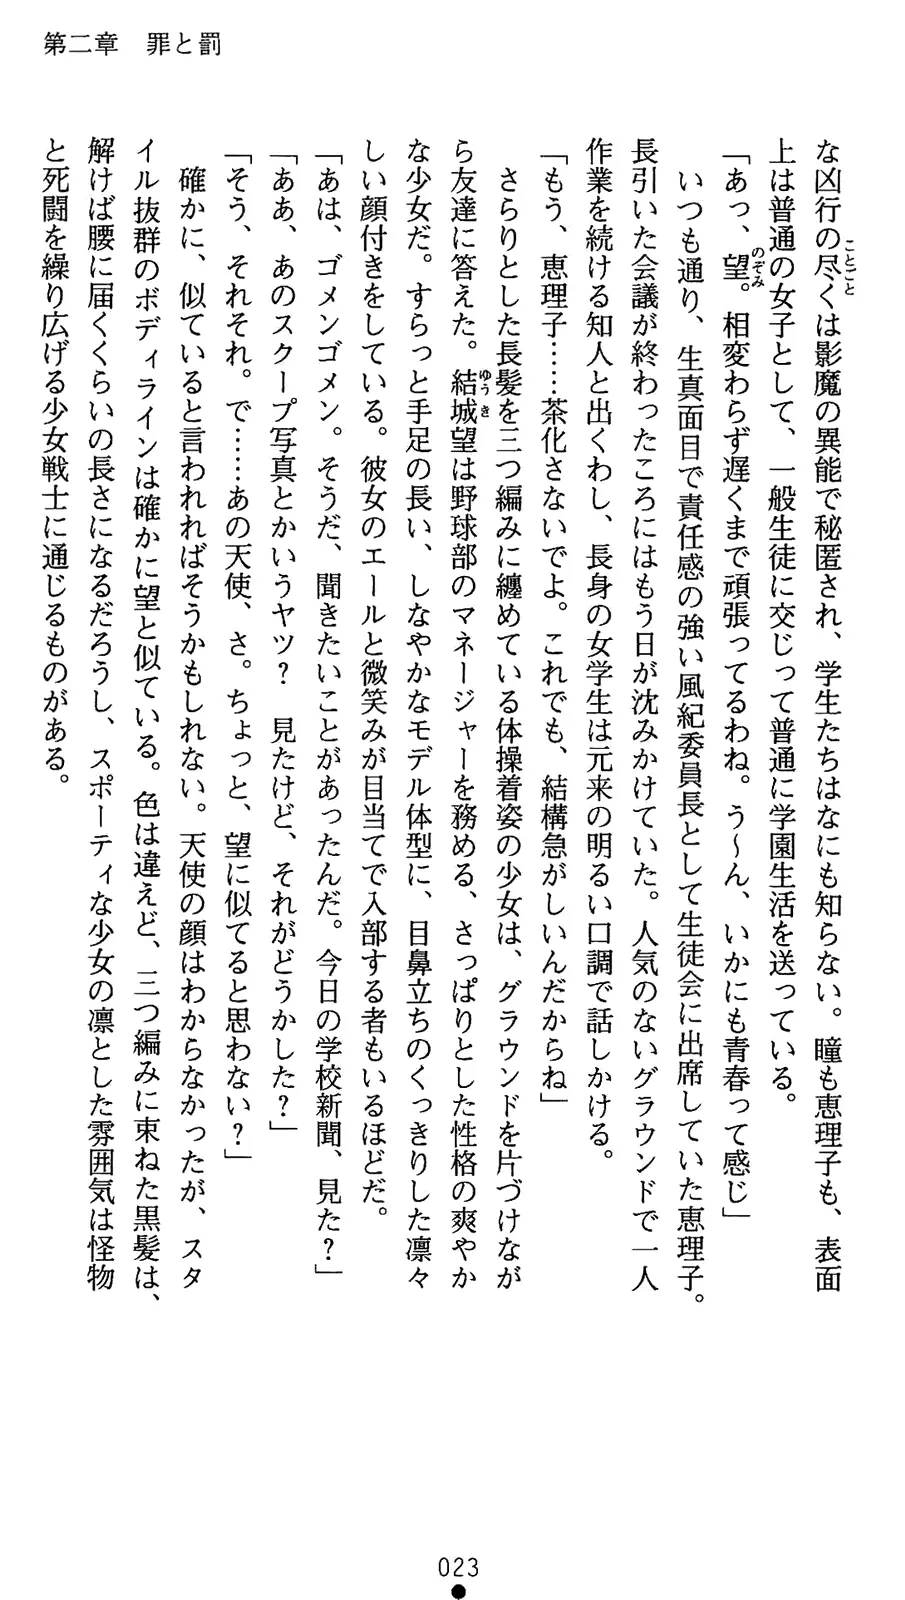 第二章　罪と罰
な凶行の尽くは影魔の異能で秘匿され、学生たちはなにも知らない。瞳も恵理子も、表面
上は普通の女子として、一般生徒に交じって普通に学園生活を送っている。
「あっ、望。相変わらず遅くまで頑張ってるわね。う～ん、いかにも青春って感じ」
　いつも通り、生真面目で責任感の強い風紀委員長として生徒会に出席していた恵理子。
長引いた会議が終わったころにはもう日が沈みかけていた。人気のないグラウンドで一人
作業を続ける知人と出くわし、長身の女学生は元来の明るい口調で話しかける。
「もう、恵理子……茶化さないでよ。これでも、結構急がしいんだからね」
　さらりとした長髪を三つ編みに纏めている体操着姿の少女は、グラウンドを片づけなが
ら友達に答えた。結城望は野球部のマネージャーを務める、さっぱりとした性格の爽やか
な少女だ。すらっと手足の長い、しなやかなモデル体型に、目鼻立ちのくっきりした凛々
しい顔付きをしている。彼女のエールと微笑みが目当てで入部する者もいるほどだ。
「あは、ゴメンゴメン。そうだ、聞きたいことがあったんだ。今日の学校新聞、見た？」
「ああ、あのスクープ写真とかいうヤツ？　見たけど、それがどうかした？」
「そう、それそれ。で……あの天使、さ。ちょっと、望に似てると思わない？」
　確かに、似ていると言われればそうかもしれない。天使の顔はわからなかったが、スタ
イル抜群のボディラインは確かに望と似ている。色は違えど、三つ編みに束ねた黒髪は、
解けば腰に届くくらいの長さになるだろうし、スポーティな少女の凛とした雰囲気は怪物
と死闘を繰り広げる少女戦士に通じるものがある。
023